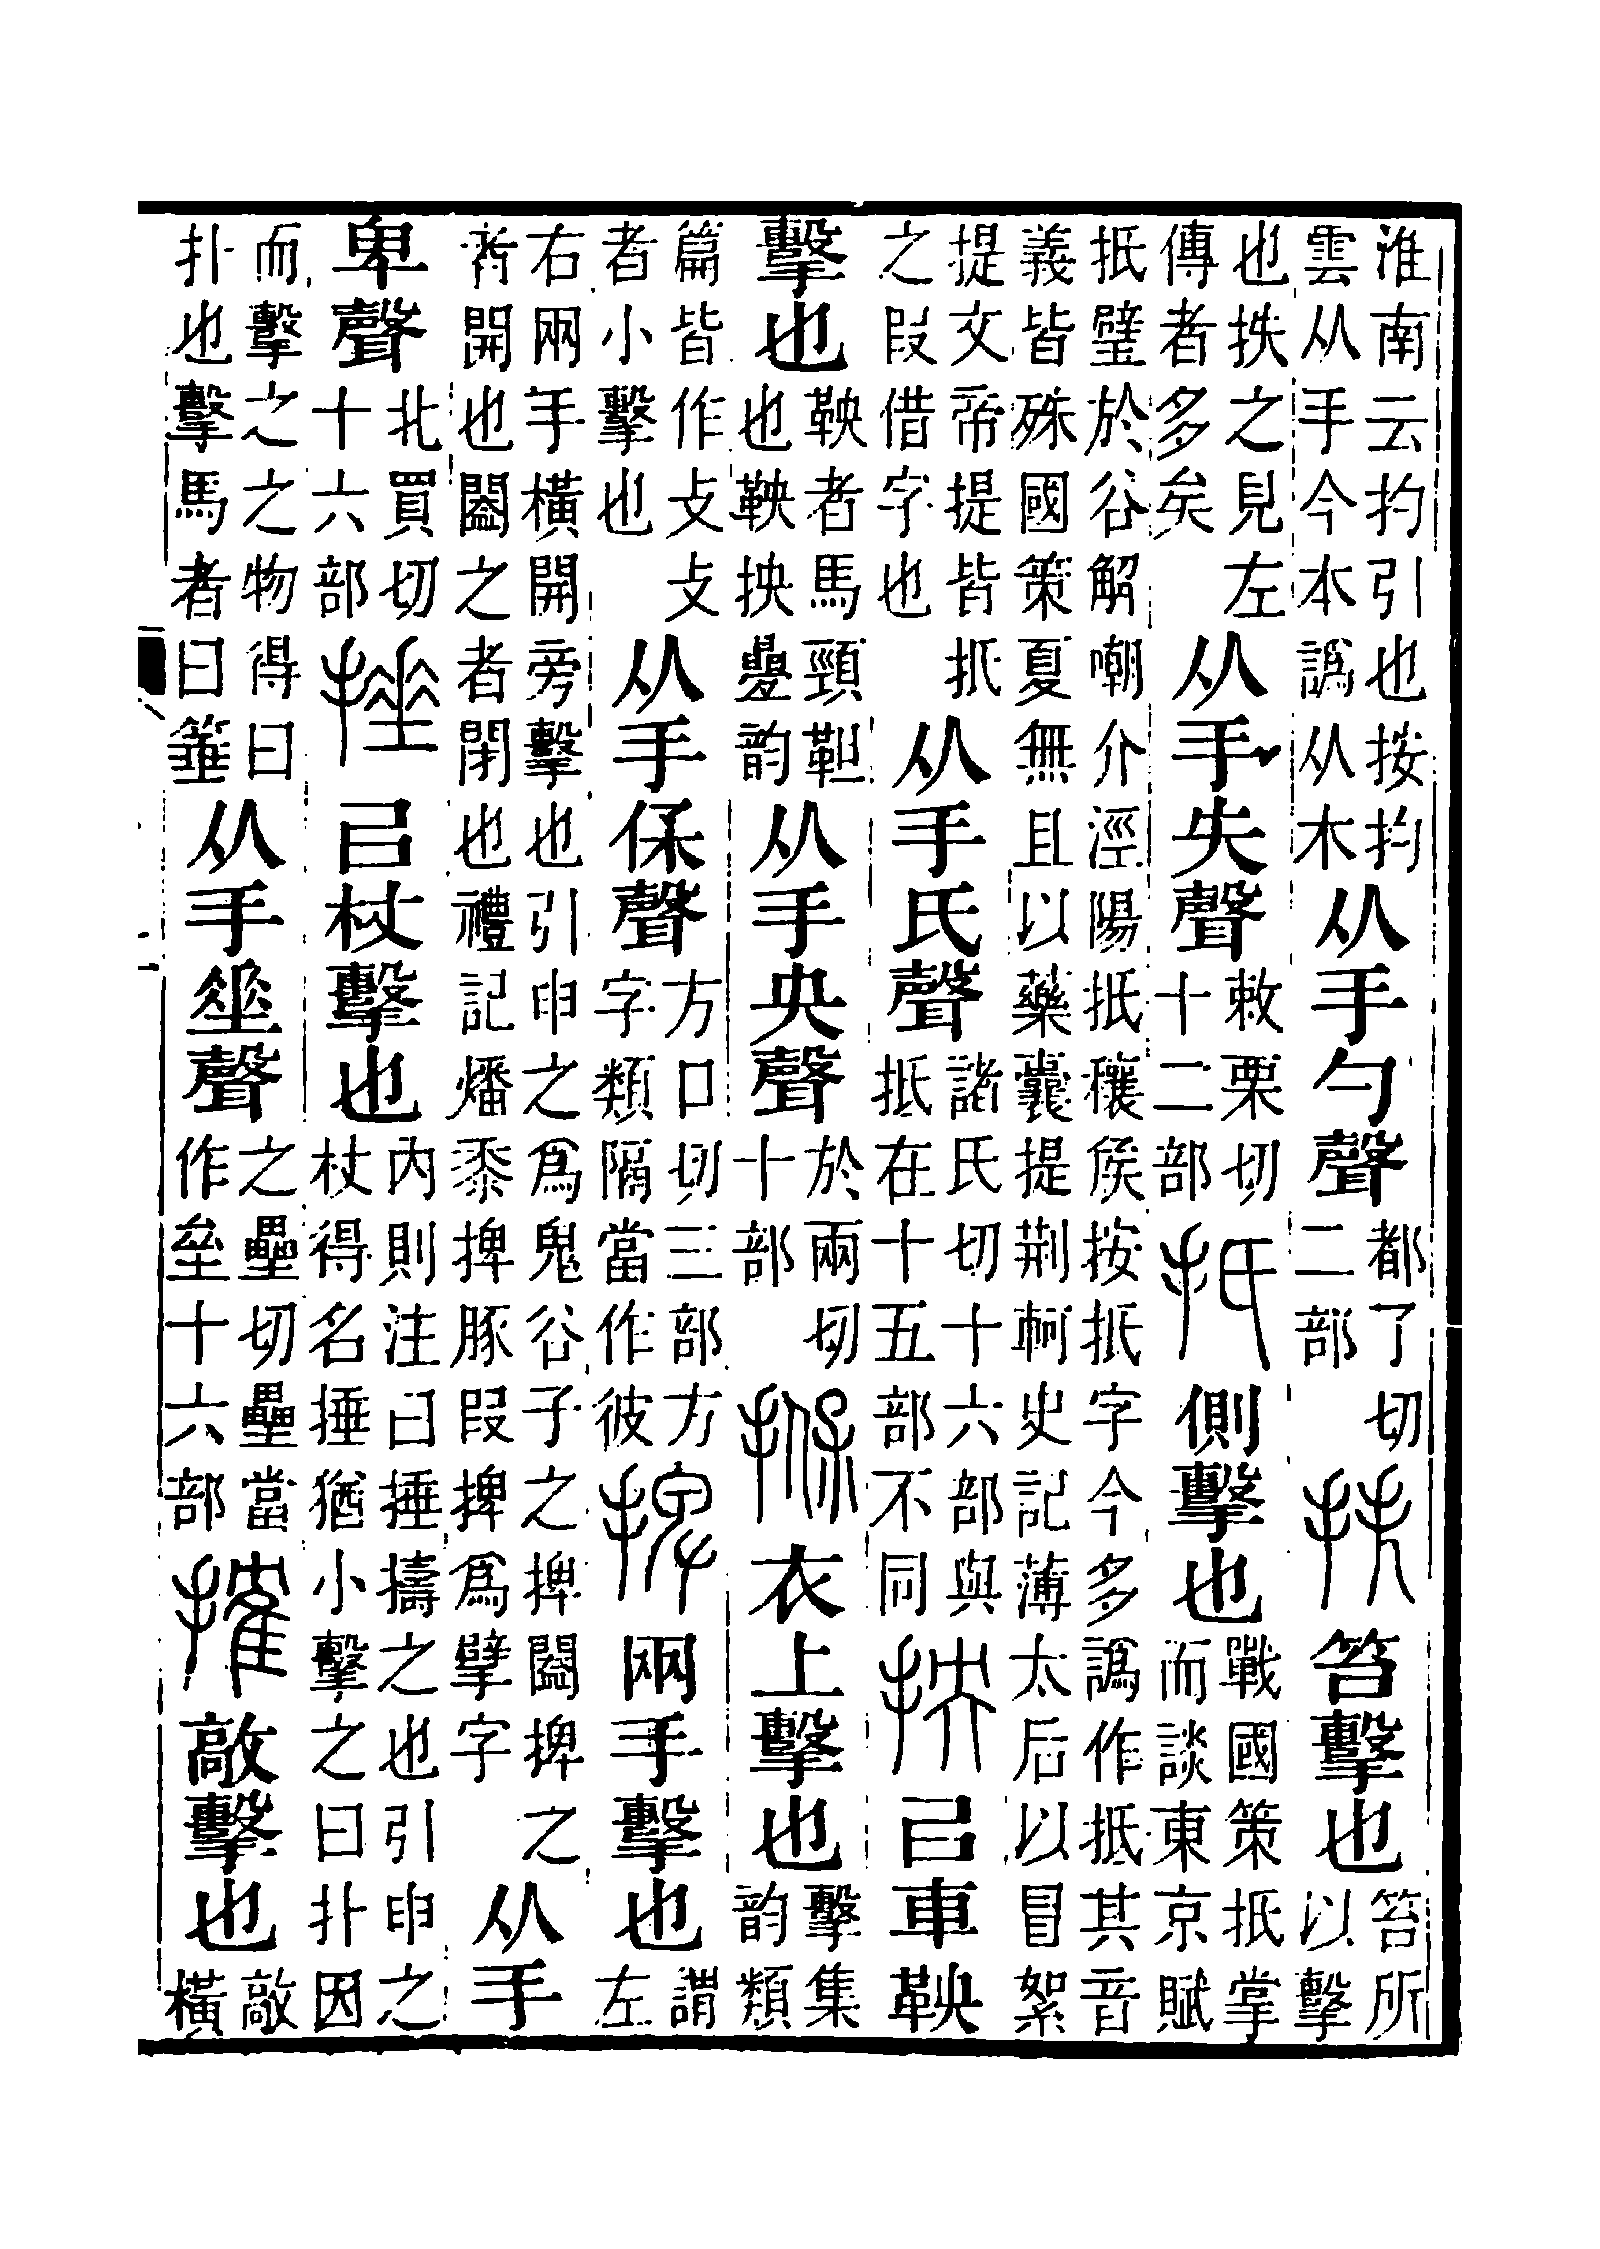 淮南云扚引也按扚
雲从手今本譌从木
从手勺聲
都了切
二部
抶
笞擊也
笞所
以擊
也抶之見左
傳者多矣
从手失聲
敕栗切
十二部
扺
側擊也
戰國策扺掌
而談東京賦
扺璧於谷解嘲介涇陽扺穰侯按扺字今多譌作抵其音
義皆殊國策夏無且以藥囊提荆軻史記薄太后以冒絮
提文帝提皆扺
之叚借字也
从手氏聲
諸氏切十六部與
抵在十五部不同
抰
㠯車鞅
擊也
鞅者馬頸靼
也鞅抰曡韵
从手央聲
於兩切
十部
㨐
衣上擊也
擊集
韵類
篇皆作攴攴
者小擊也
从手保聲
方口切三部方
字類隔當作彼
捭
兩手擊也
謂
左
右兩手橫開旁擊也引申之爲鬼谷子之捭闔捭之
者開也闔之者閉也禮記燔黍捭豚叚捭爲擘字
从手
卑聲
北買切
十六部
捶
㠯杖擊也
內則注曰捶擣之也引申之
杖得名捶猶小擊之曰扑因
而擊之之物得曰
扑也擊馬者曰箠
从手垂聲
之壘切壘當
作垒十六部
搉
敲擊也
敲
橫